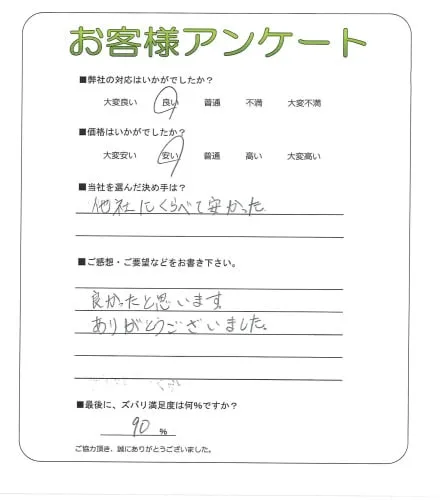 お客様アンケート
■弊社の対応はいかがでしたか？
大変良い 良い 普通 不満 大変不満
■価格はいかがでしたか？
大変安い 安い 普通 高い 大変高い
■当社を選んだ決め手は？
他社にくらべて安かった
■ご感想・ご要望などをお書き下さい。
良かったと思います。
ありがとうございました。
■最後に、ズバリ満足度は何%ですか？
90 %
ご協力頂き、誠にありがとうございました。